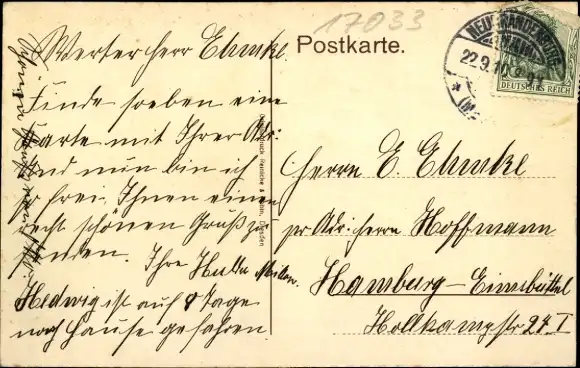 17033
Postkarte.
NEUBRANDENBURG
22.9.10
DEUTSCHES REICH
Werter Herr Ehmke.
Finde soeben eine
Karte mit Ihrer Adr:
und nun bin ich
so frei Ihnen einen
recht schönen Gruß zu
senden. Ihre
Hedwig ist auf 8 Tage
nach Hause gefahren
Herrn E. Ehmke
pr Adr: Herrn Hoffmann
Hamburg – Eimsbüttel
Hellkampstr 24 I